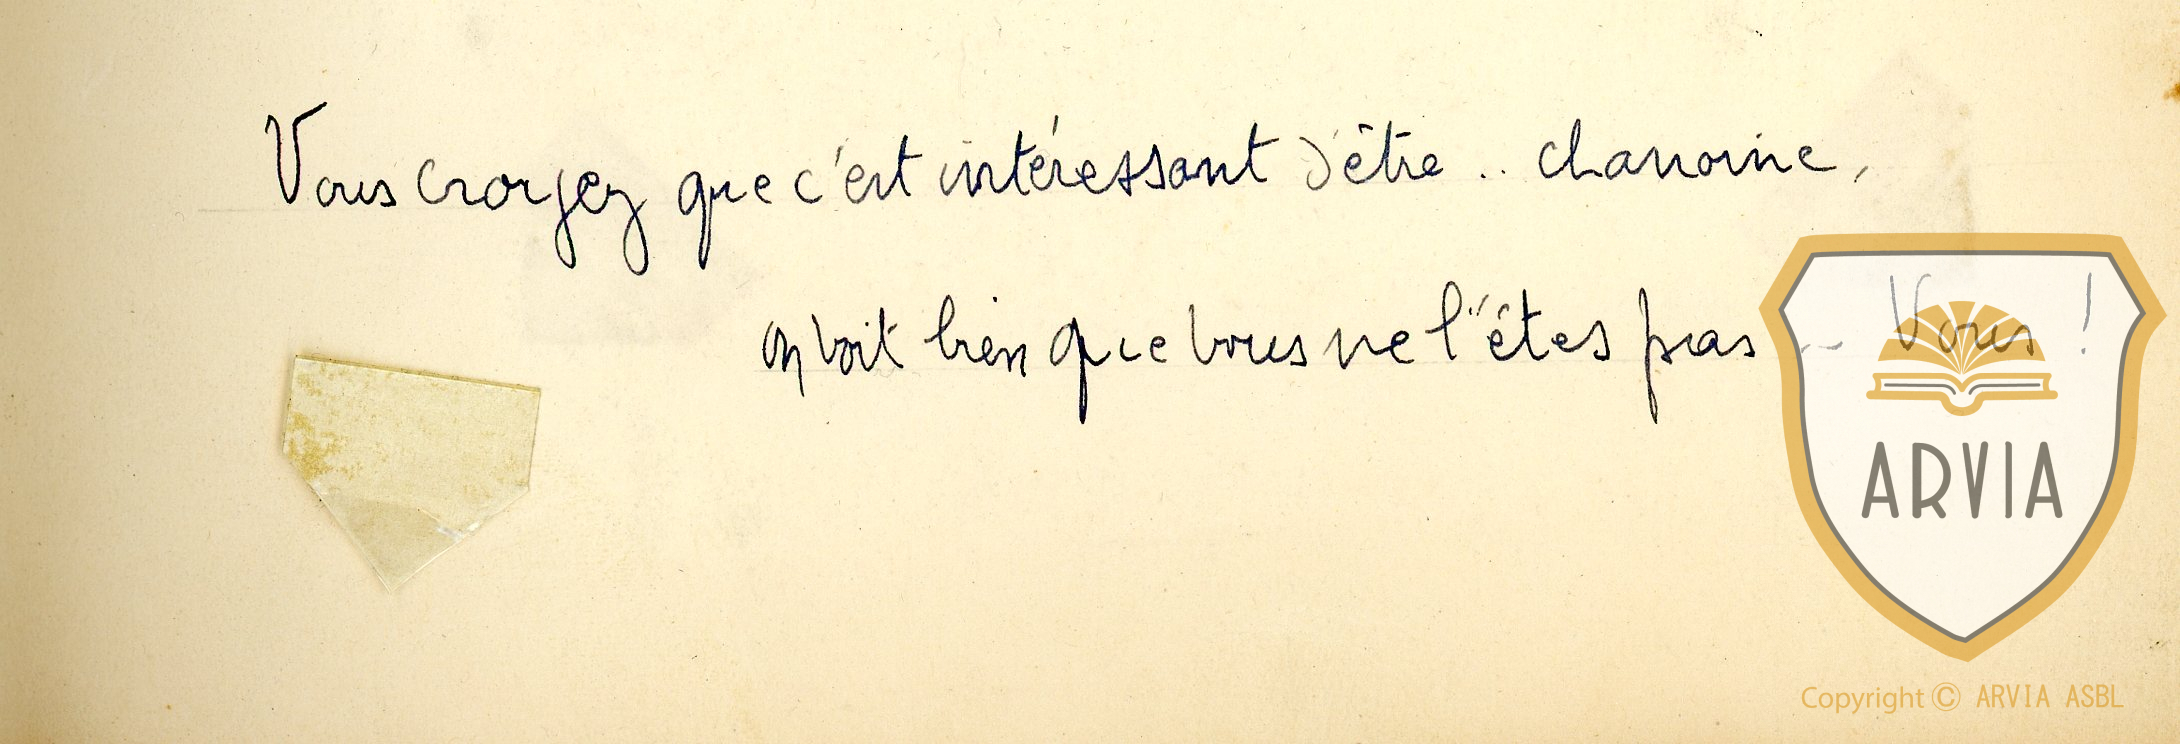 Vous croyez que c'est intéressant d'être .. chanoine,
on voit bien que vous ne l'êtes pas .. Vous !
ARVIA
Copyright © ARVIA ASBL